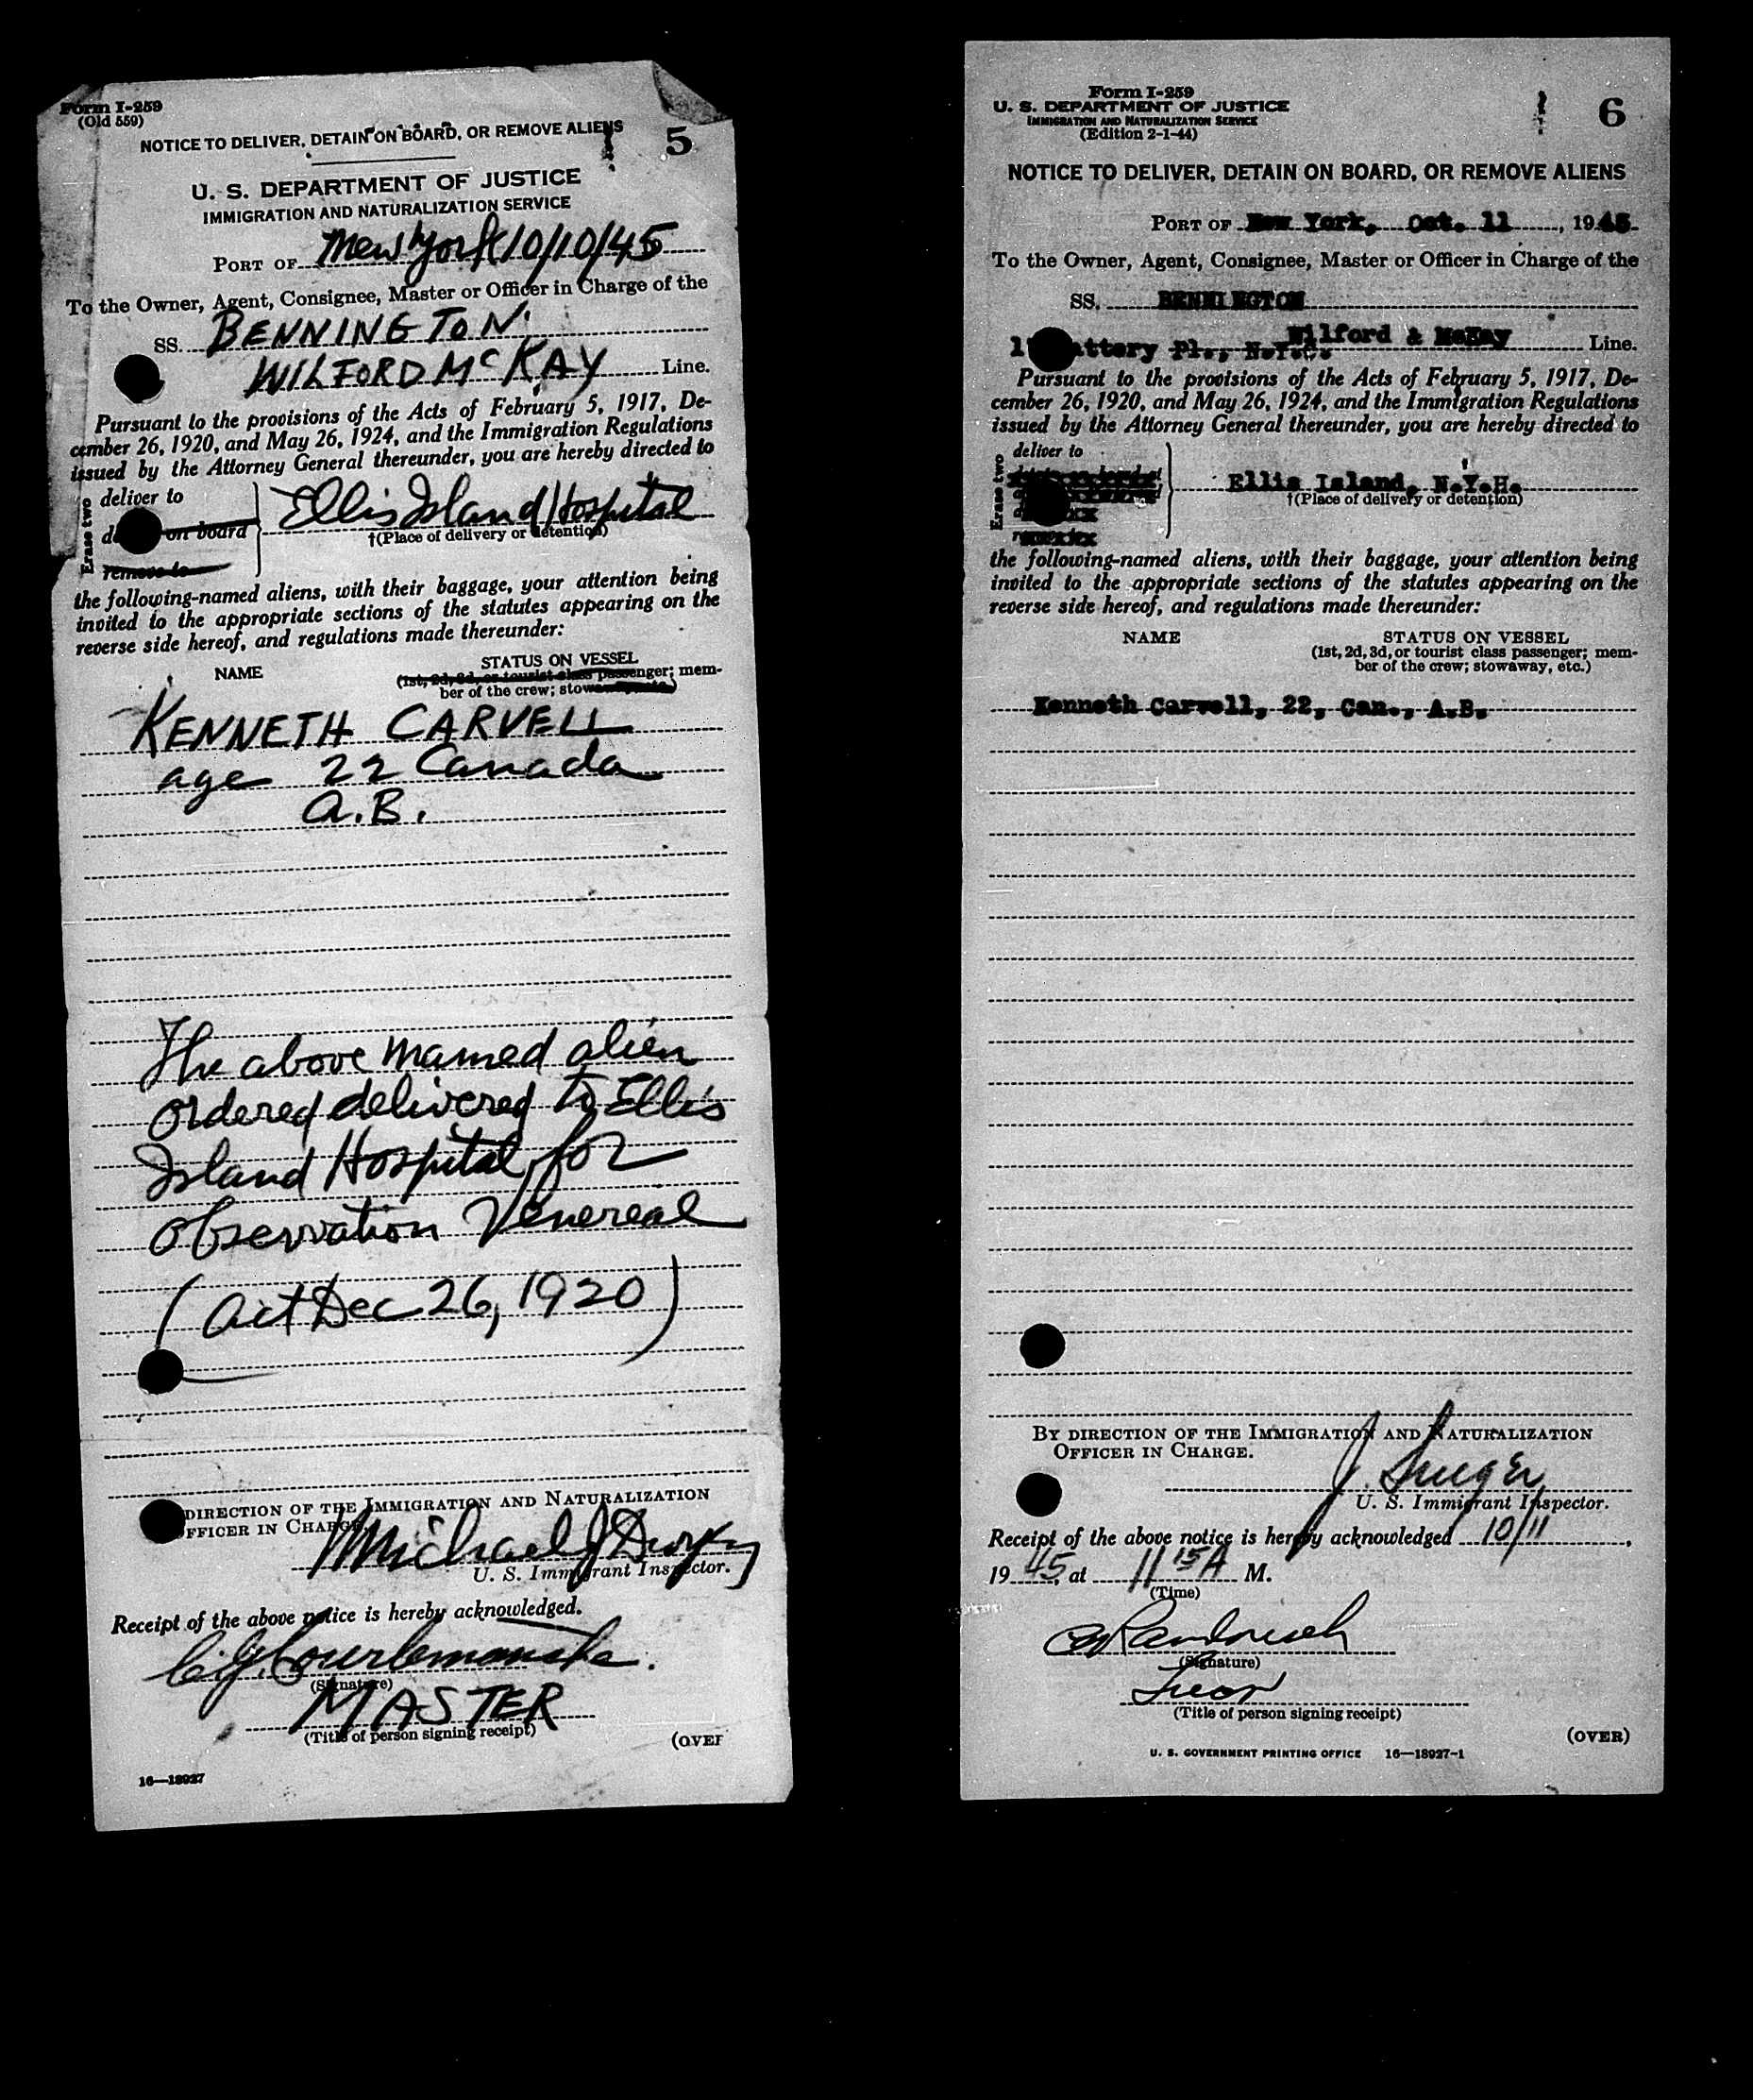 Form I-259
(Old 559)
NOTICE TO DELIVER, DETAIN ON BOARD, OR REMOVE ALIENS
5
U. S. DEPARTMENT OF JUSTICE
IMMIGRATION AND NATURALIZATION SERVICE
PORT OF New York 10/10/45
To the Owner, Agent, Consignee, Master or Officer in Charge of the
SS. BENNINGTON
WILFORD McKAY Line.
Pursuant to the provisions of the Acts of February 5, 1917, De-
cember 26, 1920, and May 26, 1924, and the Immigration Regulations
issued by the Attorney General thereunder, you are hereby directed to
Erase two
deliver to
on board
remove to
Ellis Island Hospital
†(Place of delivery or detention)
the following-named aliens, with their baggage, your attention being
invited to the appropriate sections of the statutes appearing on the
reverse side hereof, and regulations made thereunder:
NAME STATUS ON VESSEL
(1st, 2d, 3d, or tourist class passenger; mem-
ber of the crew; stowaway, etc.)
KENNETH CARVELL
age 22 Canada
A.B.
The above named alien
ordered delivered to Ellis
Island Hospital for
observation Venereal
(Act Dec 26, 1920)
DIRECTION OF THE IMMIGRATION AND NATURALIZATION
OFFICER IN CHARGE
Michael J
U. S. Immigrant Inspector.
Receipt of the above notice is hereby acknowledged.
(Signature)
MASTER
(Title of person signing receipt)
(OVER
16—18927
Form I-259
U. S. DEPARTMENT OF JUSTICE
IMMIGRATION AND NATURALIZATION SERVICE
(Edition 2-1-44)
6
NOTICE TO DELIVER, DETAIN ON BOARD, OR REMOVE ALIENS
PORT OF New York, Oct. 11, 1945
To the Owner, Agent, Consignee, Master or Officer in Charge of the
SS. BENNINGTON
Wilford & McKay
attery Pl., N.Y.C. Line.
Pursuant to the provisions of the Acts of February 5, 1917, De-
cember 26, 1920, and May 26, 1924, and the Immigration Regulations
issued by the Attorney General thereunder, you are hereby directed to
Erase two
deliver to
Ellis Island, N.Y.H.
†(Place of delivery or detention)
the following-named aliens, with their baggage, your attention being
invited to the appropriate sections of the statutes appearing on the
reverse side hereof, and regulations made thereunder:
NAME STATUS ON VESSEL
(1st, 2d, 3d, or tourist class passenger; mem-
ber of the crew; stowaway, etc.)
Kenneth Carvell, 22, Can., A.B.
BY DIRECTION OF THE IMMIGRATION AND NATURALIZATION
OFFICER IN CHARGE.
U. S. Immigrant Inspector.
Receipt of the above notice is hereby acknowledged 10/11,
1945, at 11 15 A M.
(Time)
(Signature)
(Title of person signing receipt)
(OVER)
U. S. GOVERNMENT PRINTING OFFICE 16—18927-1